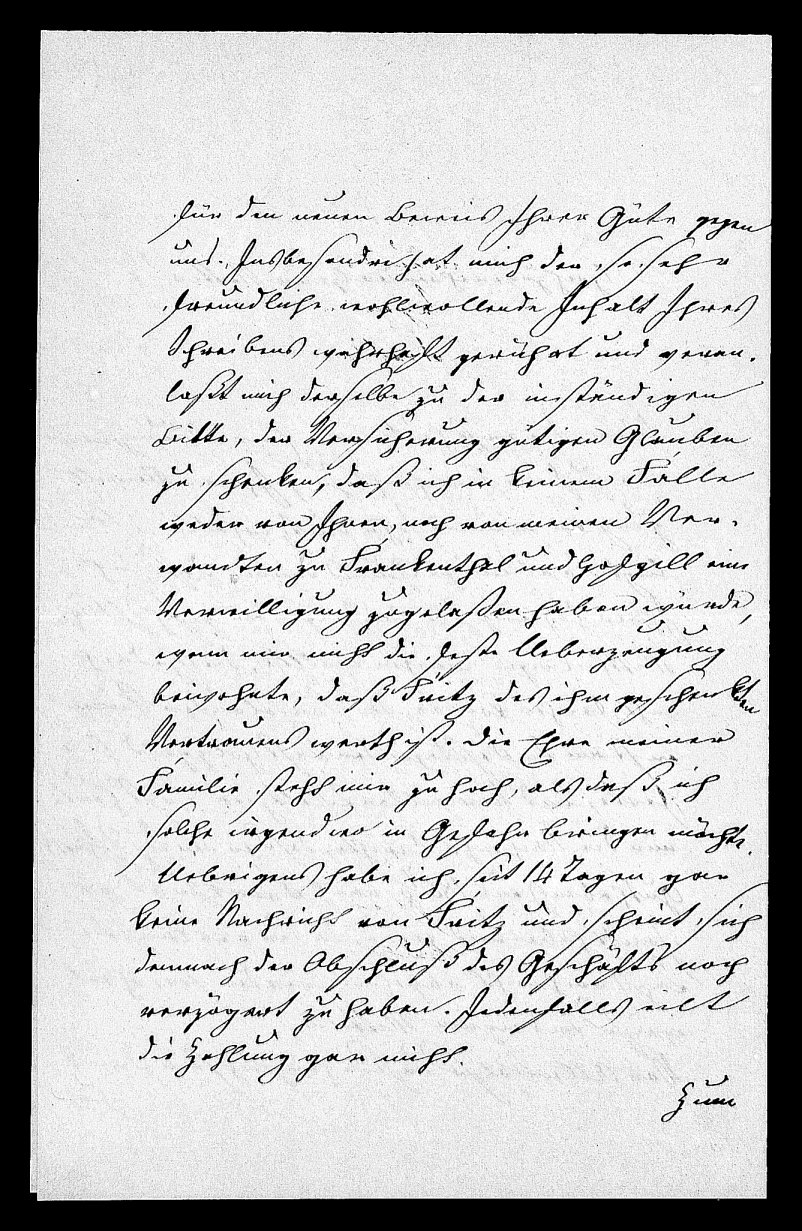 für den neuen Beweis Ihrer Güte gegen
uns. Insbesondre hat mich der so sehr
freundliche wohlwollende Inhalt Ihres
Schreibens wahrhaft gerührt und veran-
laßt mich derselbe zu der inständigen
Bitte, der Versicherung gütigen Glauben
zu schenken, daß ich in keinem Falle
weder von Ihnen, noch von meinen Ver-
wandten zu Frankenthal und eine
Verwilligung zugelaßen haben würde,
wenn mir nicht die feste Ueberzeugung
beiwohnte, daß Fritz des ihm geschenkten
Vertrauens werth ist. Die Ehre meiner
Familie steht mir zu hoch, als daß ich
solche irgendwo in Gefahr bringen möchte.
Uebrigens habe ich seit 14 Tagen gar
keine Nachricht von Fritz und scheint sich
demnach der Abschluß des Geschäfts noch
verzögert zu haben. Jedenfalls eilt
die Zahlung gar nicht.
Zum